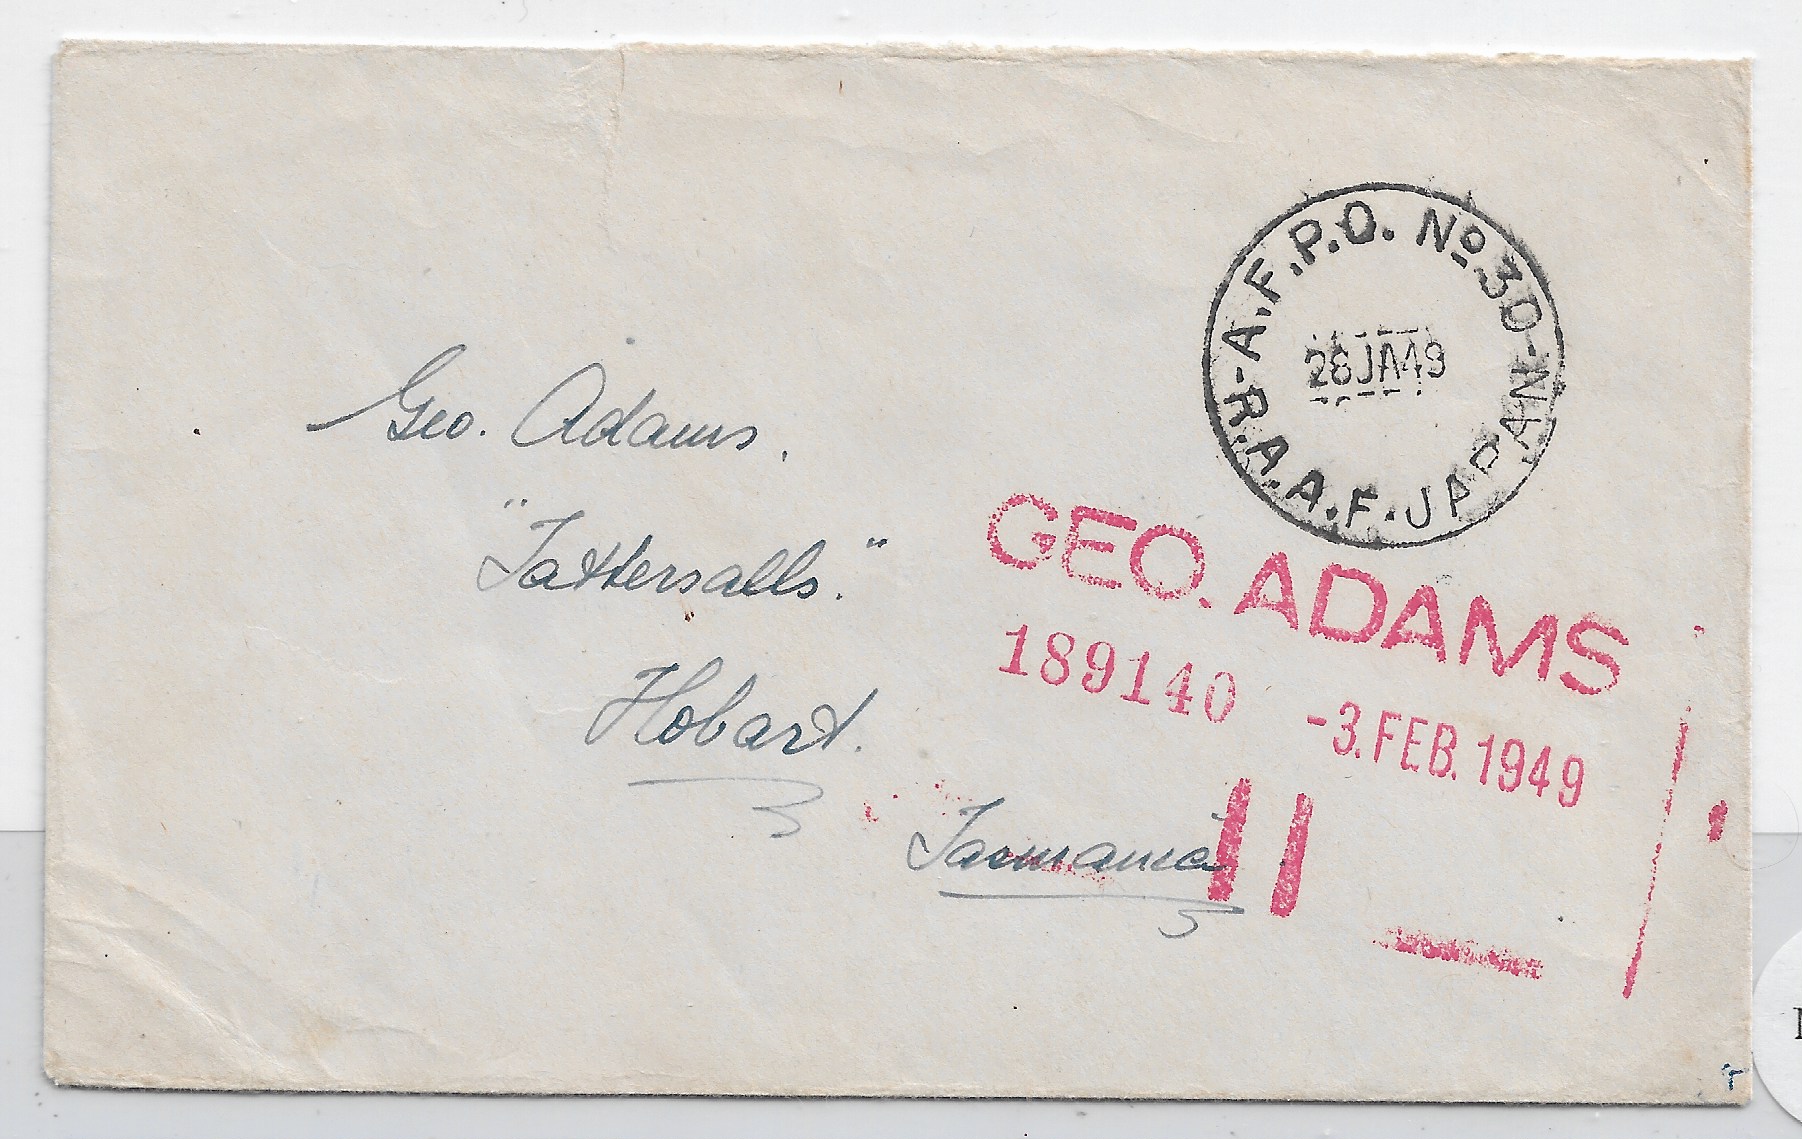 R.A.F.P.O. No. 3D-
R.A.A.F. JAPAN
28JA49
Geo. Adams.
"Tattersalls."
Hobart.
Tasmania
GEO. ADAMS
189140 -3. FEB. 1949